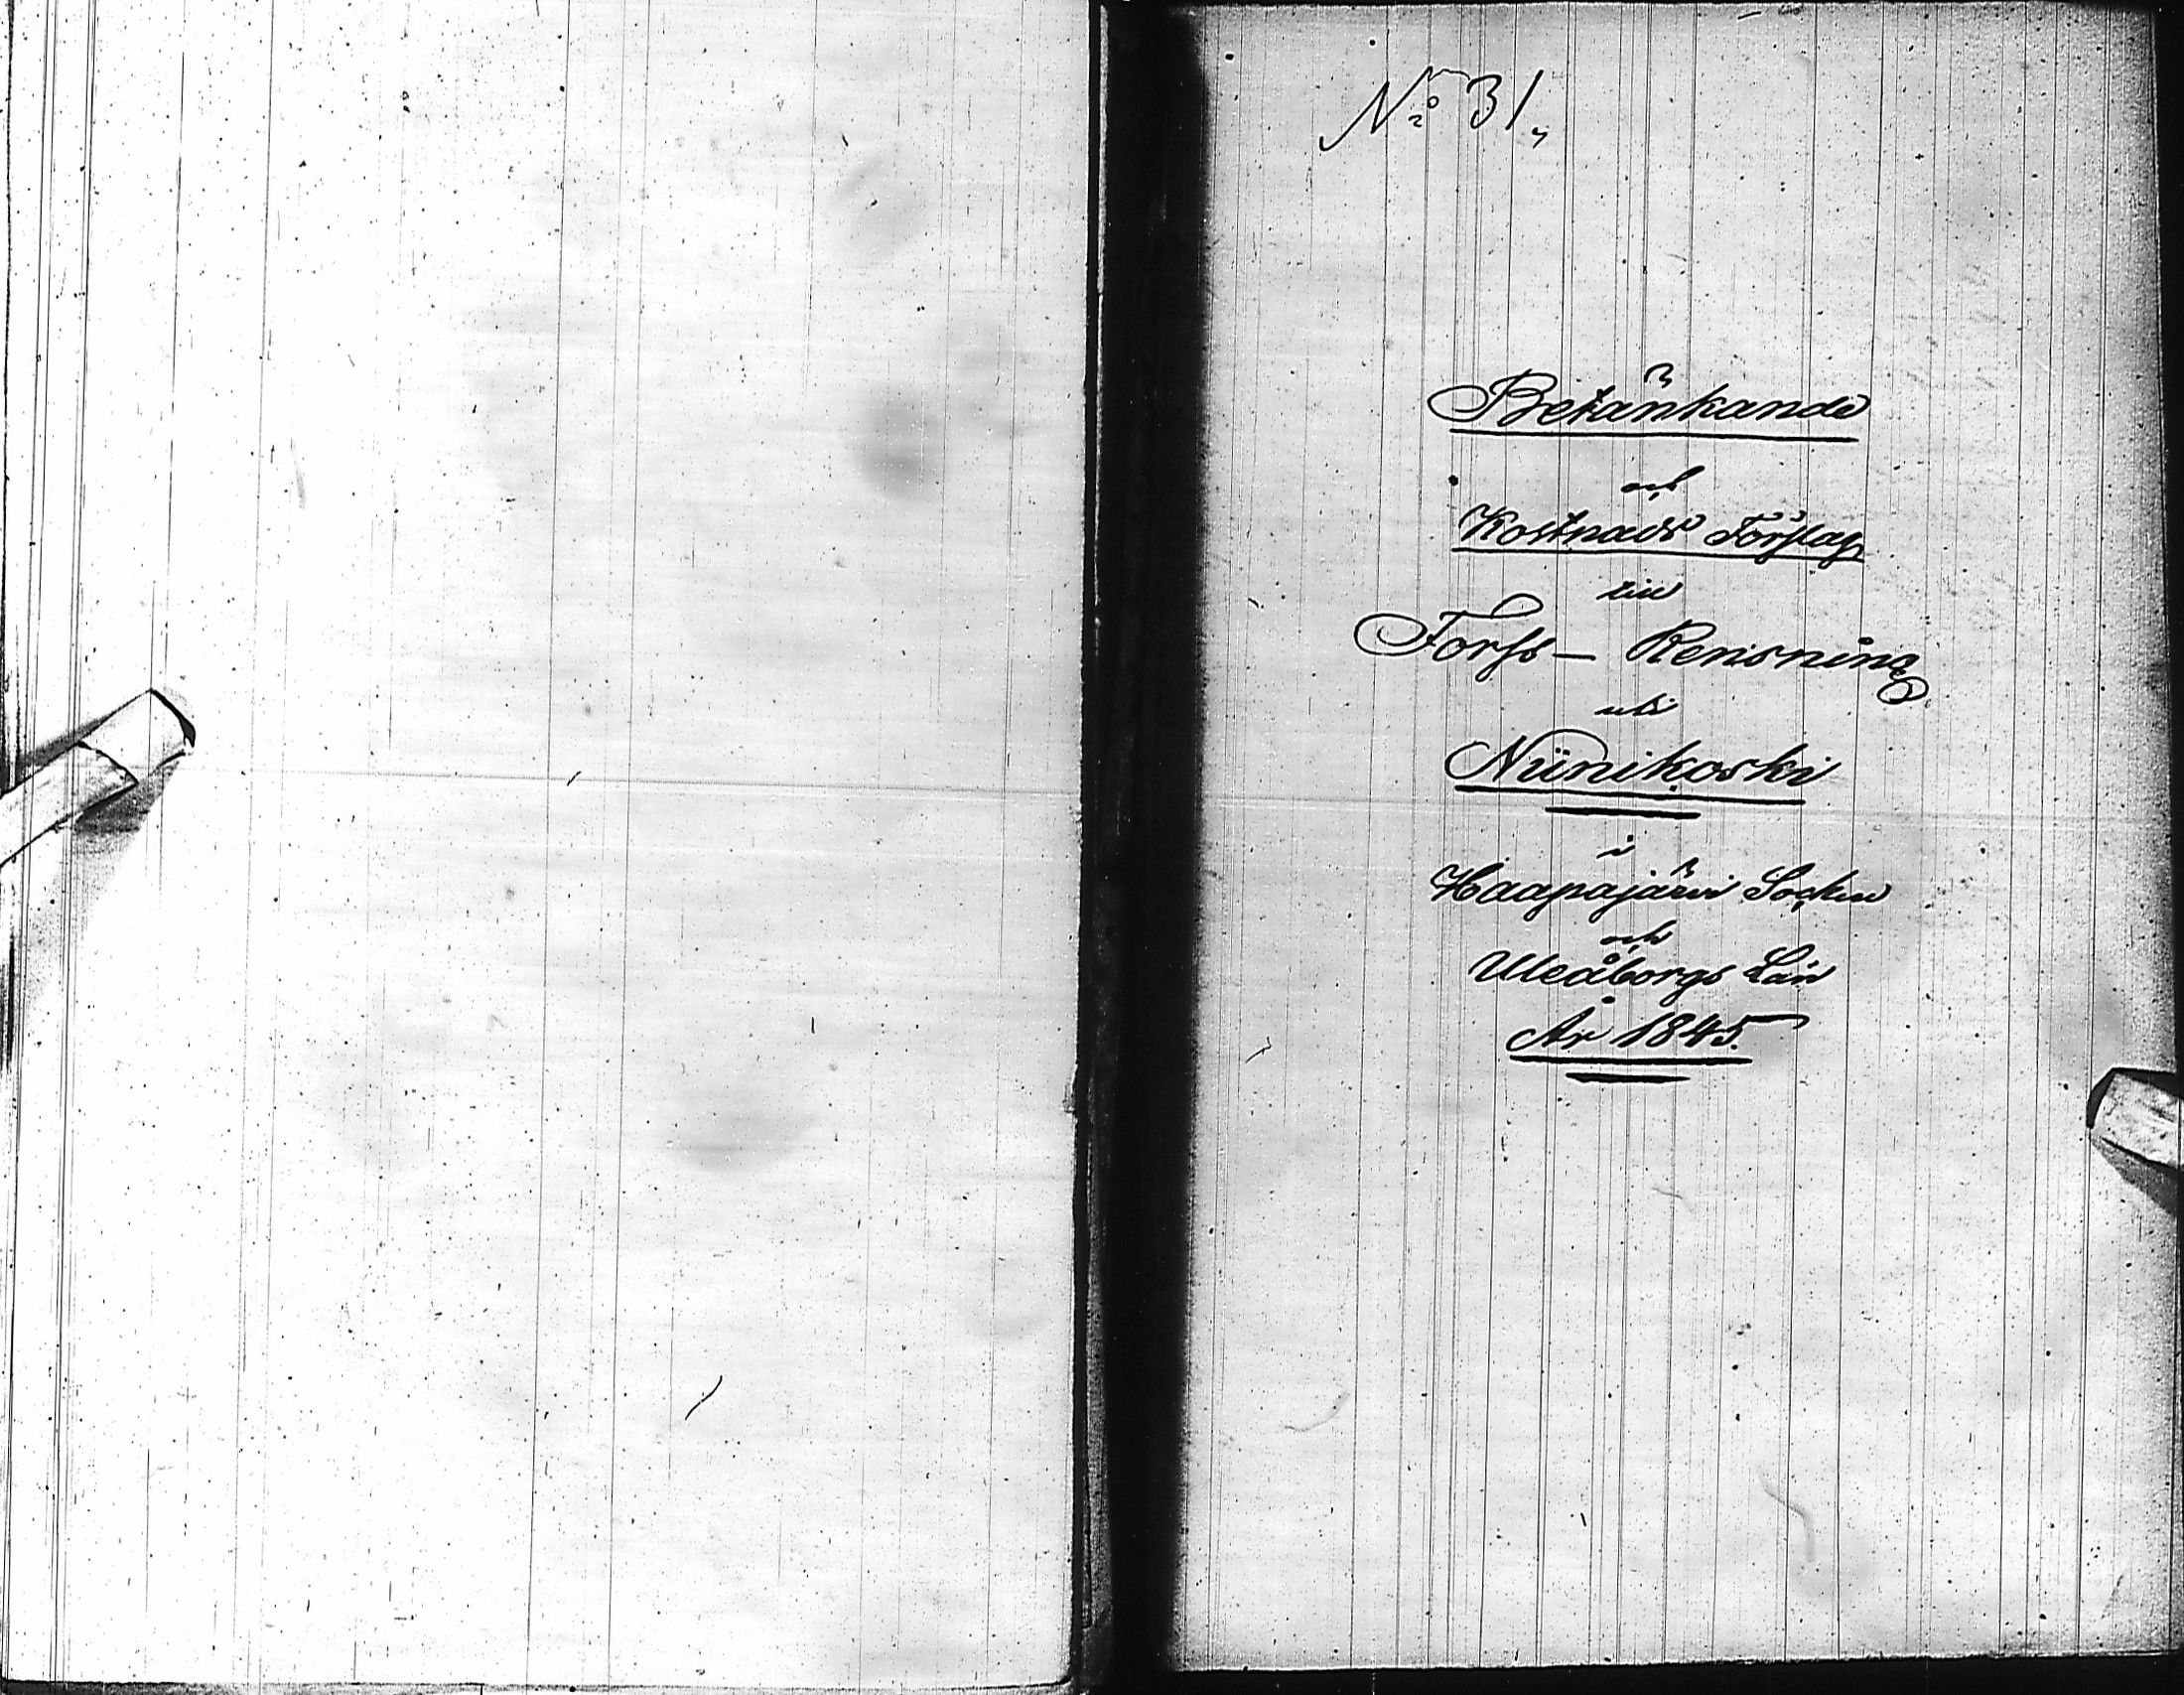 No 31,
Betänkande
och
Kostnads Förslag
till
Forss- Rensning
uti
Niinikoski
i
Haapajärvi Socken
och
Uleåborgs Län
År 1845.